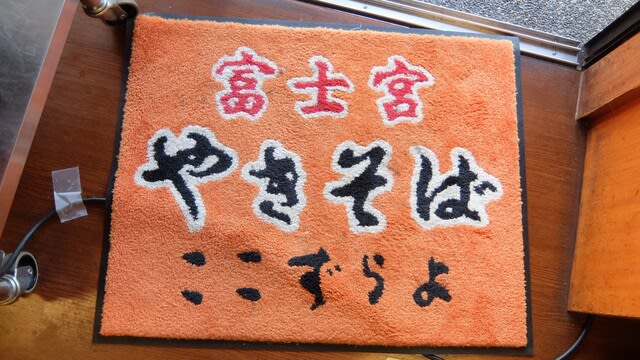 富士宮
やきそば
ここずらよ